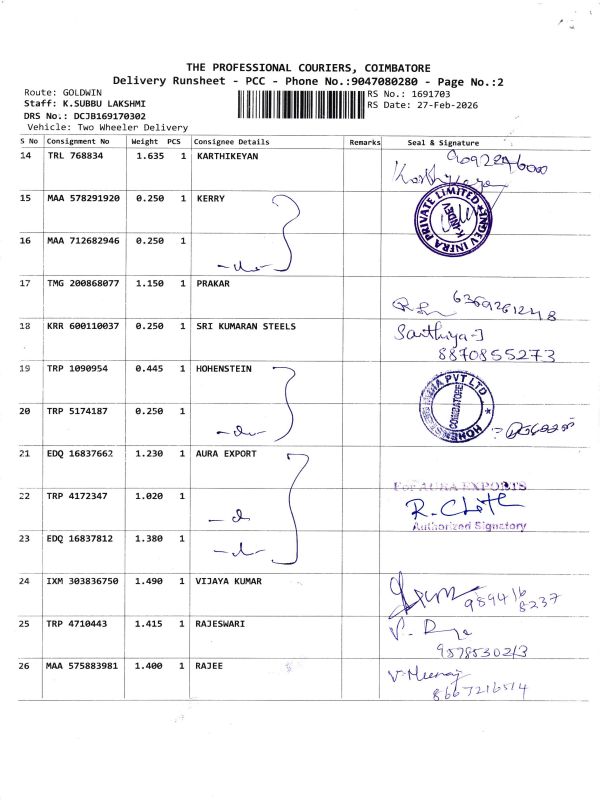 THE PROFESSIONAL COURIERS, COIMBATORE
Delivery Runsheet - PCC - Phone No.:9047080280 - Page No.:2
Route: GOLDWIN
Staff: K.SUBBU LAKSHMI
DRS No.: DCJB169170302
Vehicle: Two Wheeler Delivery
RS No.: 1691703
RS Date: 27-Feb-2026
S No Consignment No Weight PCS Consignee Details Remarks Seal & Signature
14 TRL 768834 1.635 1 KARTHIKEYAN
15 MAA 578291920 0.250 1 KERRY
INDEV INFRA PRIVATE LIMITED
16 MAA 712682946 0.250 1
17 TMG 200868077 1.150 1 PRAKAR
6369261248
18 KRR 600110037 0.250 1 SRI KUMARAN STEELS Santhiya-J
8870855273
19 TRP 1090954 0.445 1 HOHENSTEIN
PVT LTD
COIMBATORE
20 TRP 5174187 0.250 1
21 EDQ 16837662 1.230 1 AURA EXPORT
For AURA EXPORTS
22 TRP 4172347 1.020 1
Authorized Signatory
23 EDQ 16837812 1.380 1
24 IXM 303836750 1.490 1 VIJAYA KUMAR
989416
8237
25 TRP 4710443 1.415 1 RAJESWARI
9578530213
26 MAA 575883981 1.400 1 RAJEE V-Meenaj
8667216514